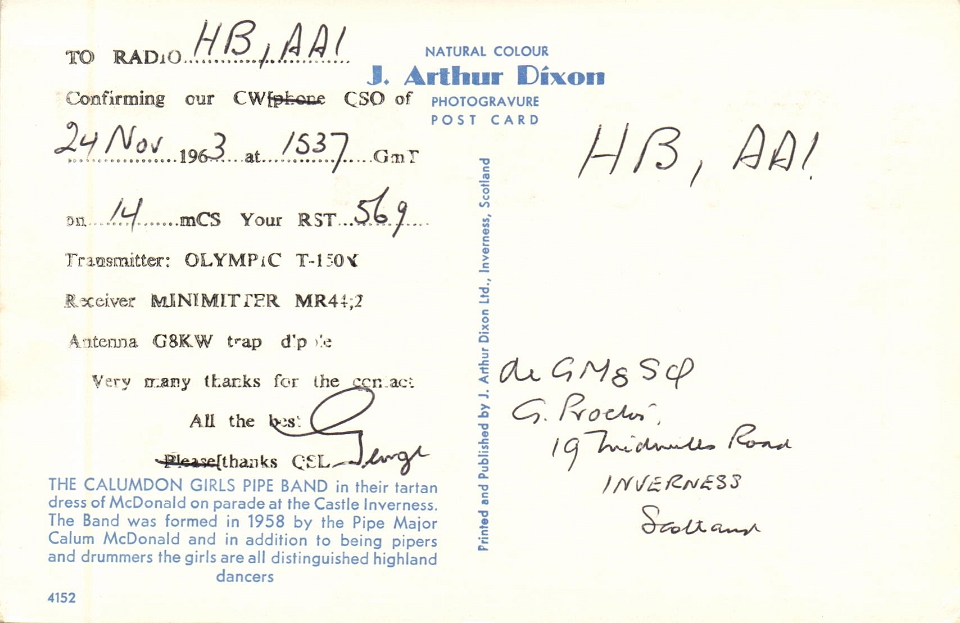 TO RADIO HB,AA1
Confirming our CW/phone QSO of
24 Nov 1963 at 1537 GmT
on 14 mCS Your RST 569
Transmitter: OLYMPIC T-150
Receiver MINIMITTER MR44/2
Antenna G8KW trap dipole
Very many thanks for the contact
All the best
George
Please/thanks QSL
THE CALUMDON GIRLS PIPE BAND in their tartan
dress of McDonald on parade at the Castle Inverness.
The Band was formed in 1958 by the Pipe Major
Calum McDonald and in addition to being pipers
and drummers the girls are all distinguished highland
dancers
4152
NATURAL COLOUR
J. Arthur Dixon
PHOTOGRAVURE
POST CARD
Printed and Published by J. Arthur Dixon Ltd., Inverness, Scotland
HB, AA1
de GM8SQ
G. Proctor,
19 Midmills Road
INVERNESS
Scotland